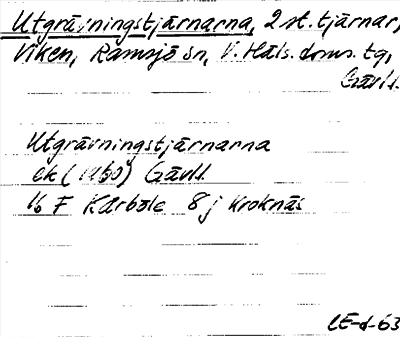 Utgrävningstjärnarna, 2 st. tjärnar,
Viken, Ramsjö sn, V. Häls. doms. tg,
Gävl.l.
Utgrävningstjärnarna
ek (1960) Gävl.l.
16 F Kårböle 8 j Kroknäs
CE-d-63